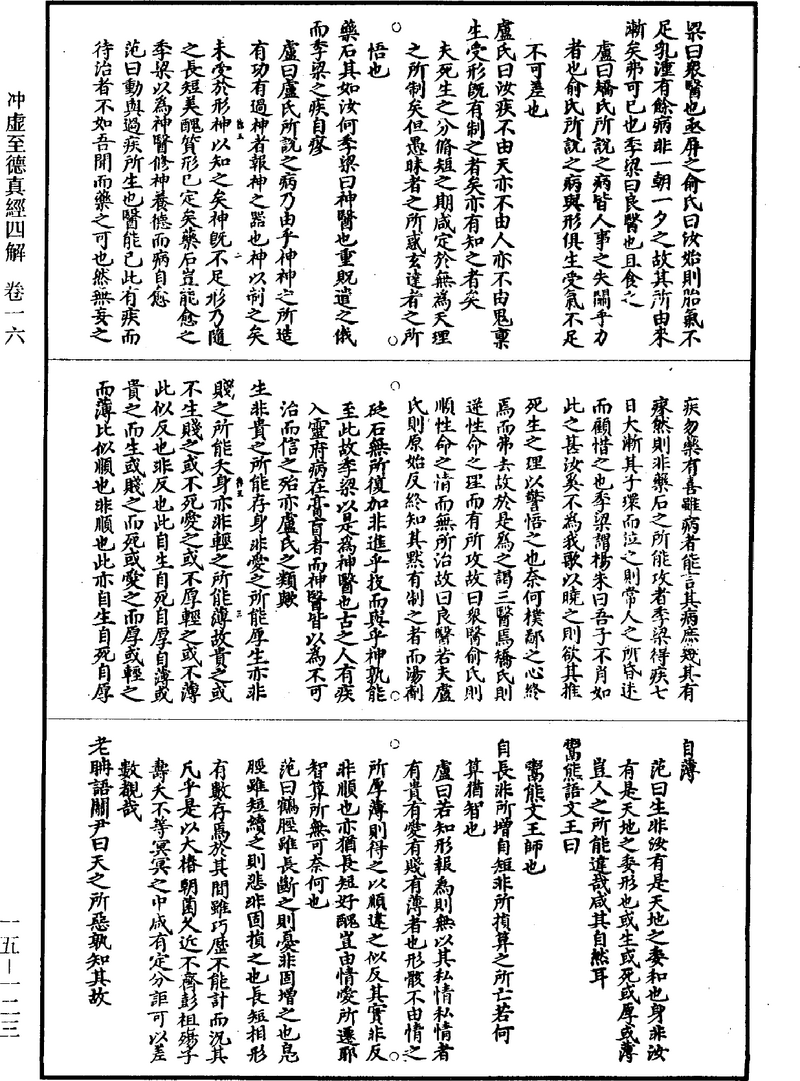 冲虛至德真經四解　卷一六
一五—一二三
梁曰衆醫也亟屏之俞氏曰汝始則胎氣不
足乳湩有餘病非一朝一夕之故其所由來
漸矣弗可已也季梁曰良醫也且食之
盧曰矯氏所說之病皆人事之失關乎力
者也俞氏所說之病與形俱生受氣不足
不可差也
盧氏曰汝疾不由天亦不由人亦不由鬼稟
生受形旣有制之者矣亦有知之者矣
夫死生之分脩短之期咸定於無爲天理
之所制矣但愚昧者之所惑玄達者之所
悟也
藥石其如汝何季梁曰神醫也重貺遣之俄
而季梁之疾自瘳
盧曰盧氏所說之病乃由乎神神之所造
有功有過神者報神之器也神以制之矣
未受於形神以知之矣神旣不足形乃隨
之長短美醜質形已定矣藥石豈能愈之
季梁以爲神醫修神養德而病自愈
范曰動與過疾所生也醫能已此有疾而
待治者不如吾聞而藥之可也然無妄之
疾勿藥有喜雖病者能言其病庶幾其有
瘳然則非藥石之所能攻者季梁得疾七
日大漸其子環而泣之則常人之所昏迷
而顧惜之也季梁謂楊朱曰吾子不肖如
此之甚汝奚不為我歌以曉之則欲其推
死生之理以警悟之也奈何樸鄙之心終
焉而弗去故於是為之謁三醫焉矯氏則
逆性命之理而有所攻故曰衆醫俞氏則
順性命之情而無所治故曰良醫若夫盧
氏則原始反終知其黙有制之者而湯劑
砭石無所復加非進乎技而與乎神孰能
至此故季梁以是為神醫也古之人有疾
入靈府病在膏肓者而神醫皆以為不可
治而信之殆亦盧氏之類歟
生非貴之所能存身非愛之所能厚生亦非
賤之所能夭身亦非輕之所能薄故貴之或
不生賤之或不死愛之或不厚輕之或不薄
此似反也非反也此自生自死自厚自薄或
貴之而生或賤之而死或愛之而厚或輕之
而薄比似順也非順也此亦自生自死自厚
自薄
范曰生非汝有是天地之委和也身非汝
有是天地之委形也或生或死或厚或薄
豈人之所能違哉咸其自然耳
鬻熊語文王曰
鬻熊文王師也
自長非所增自短非所損算之所亡若何
算猶智也
盧曰若知形報為則無以其私情私情者
有貴有愛有賤有薄者也形骸不由情之
所厚薄則得之以順違之似反其實非反
非順也亦猶長短好醜豈由情愛所遷耶
智算所無可奈何也
范曰鶴脛雖長斷之則憂非固增之也鳧
脛雖短續之則悲非固損之也長短相形
有數存焉於其間雖巧歷不能計而況其
凡乎是以大椿朝菌久近不齊彭祖殤子
壽夭不等冥冥之中咸有定分詎可以差
數觀哉
老聃語關尹曰天之所惡孰知其故